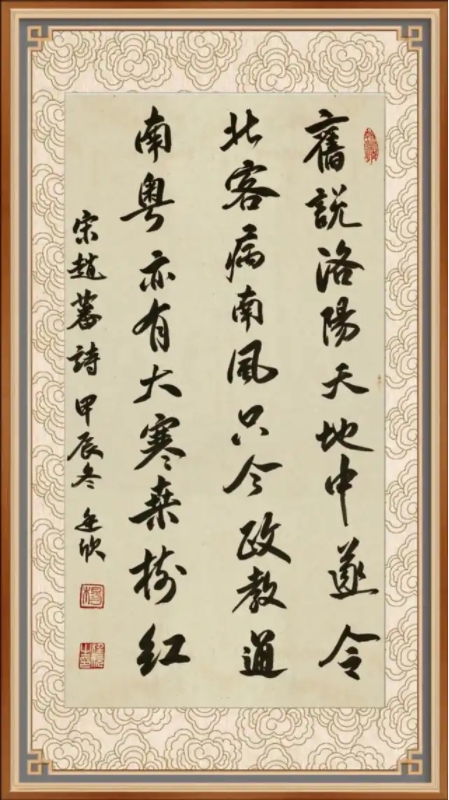 舊說洛陽天地中遂令
北客病南風只今政教通
南粵亦有大寒桒樹紅
宋趙蕃詩甲辰冬